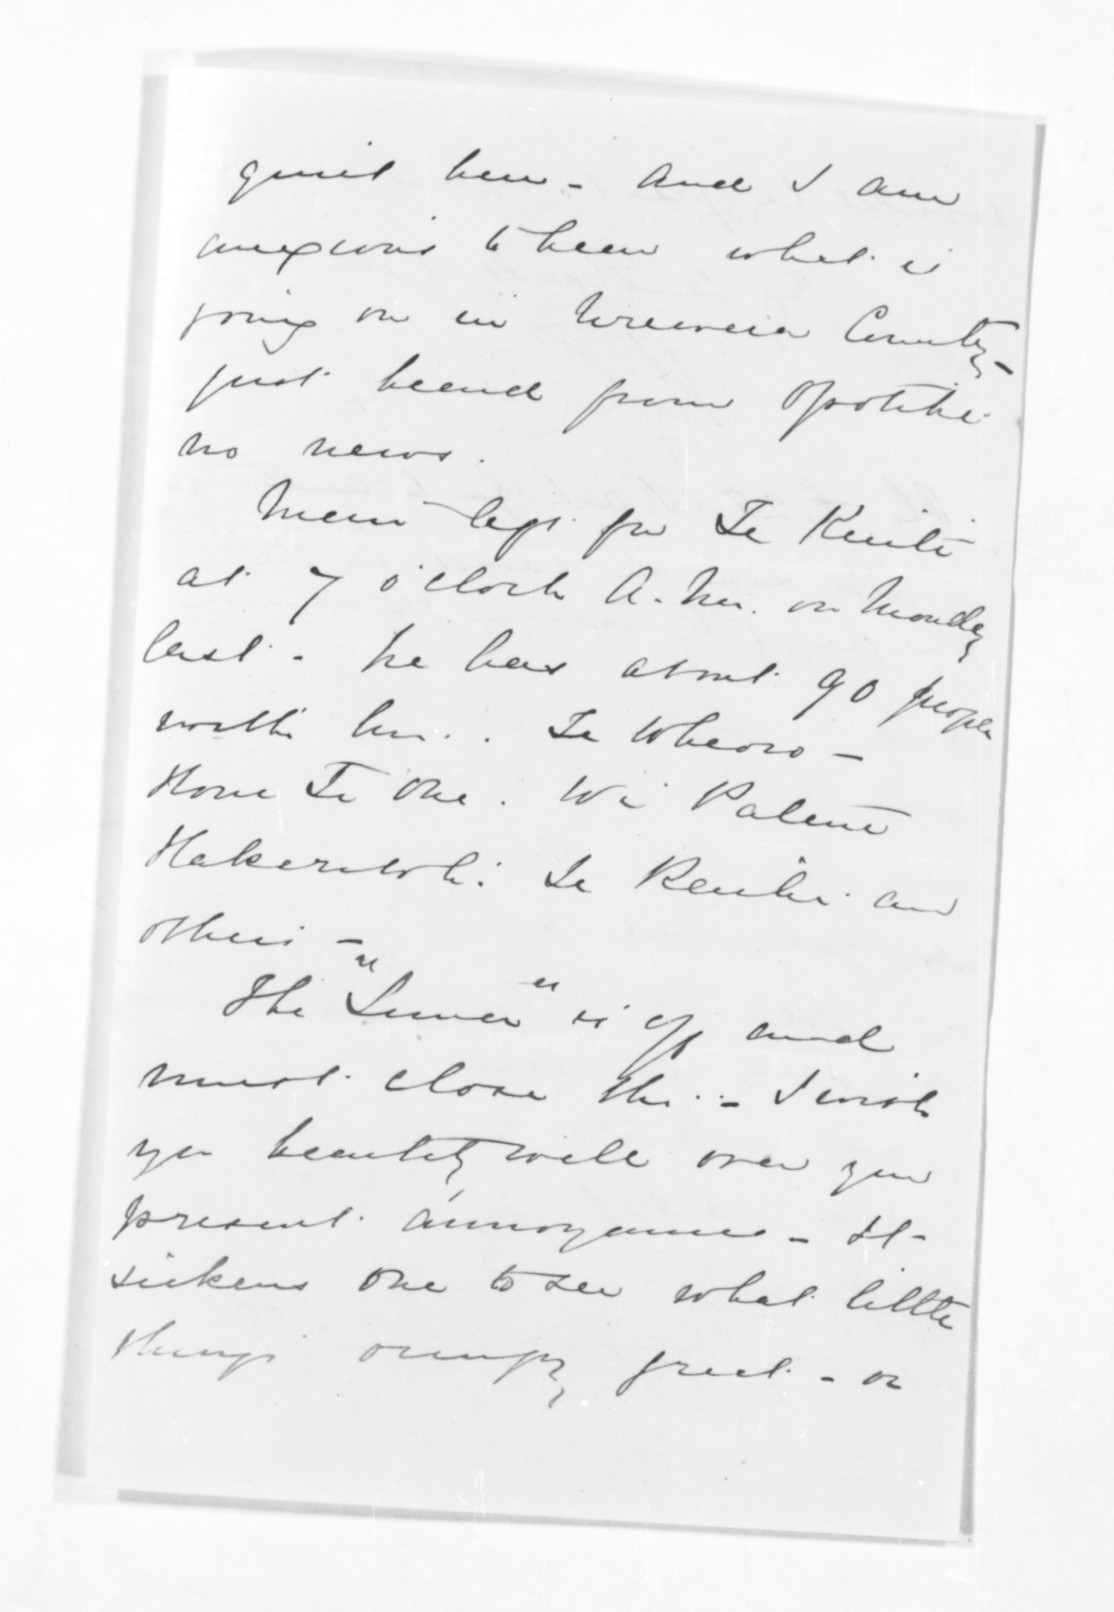 quiet here - And I am
anxious to hear what is
going on in Urewera Country -
just heard from Opotiki
no news.
Mair left for Te Kuiti
at 7 o'clock A.M. on Monday
last - he has about 90 people
with him. Te Wheoro -
Hone Te One. Wi Patene
Hakeriwhi. Te Reuhi and
others -
The "Luna" is off and
must close this - I wish
you heartily well over your
present annoyances - It
sickens one to see what little
things occupy great - or